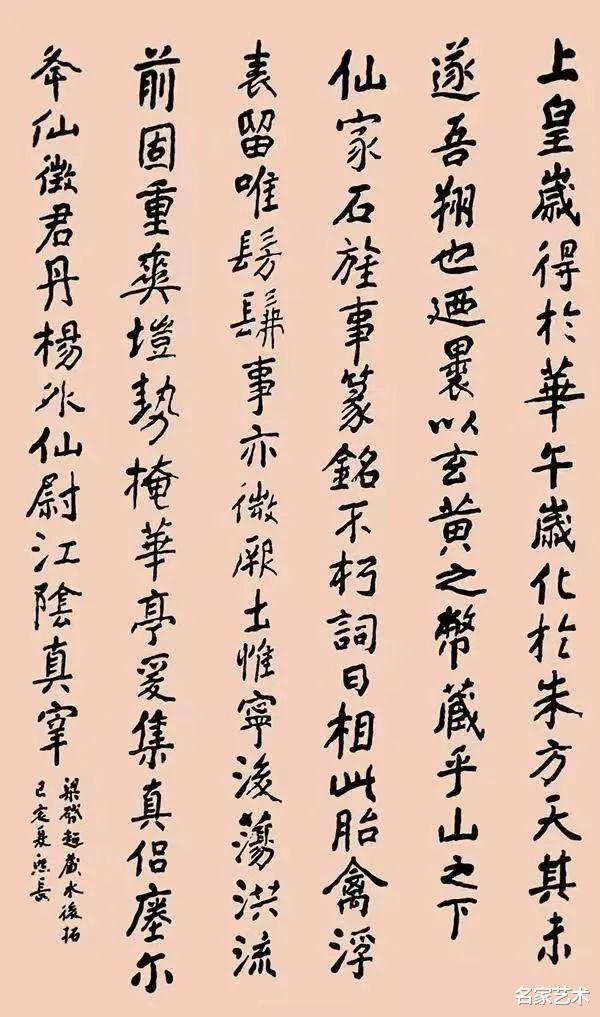 上皇歲得於華午歲化於朱方天其未
遂吾翔也迺裹以玄黄之幣藏乎山之下
仙家石旌事篆銘不朽詞曰相此胎禽浮
表留唯髣髴事亦微厥土惟寧後蕩洪流
前固重爽塏勢掩華亭爰集真侣瘞尔
夆仙徵君丹楊外仙尉江陰真宰
梁啓超藏水後拓
己亥夏 長
名家艺术